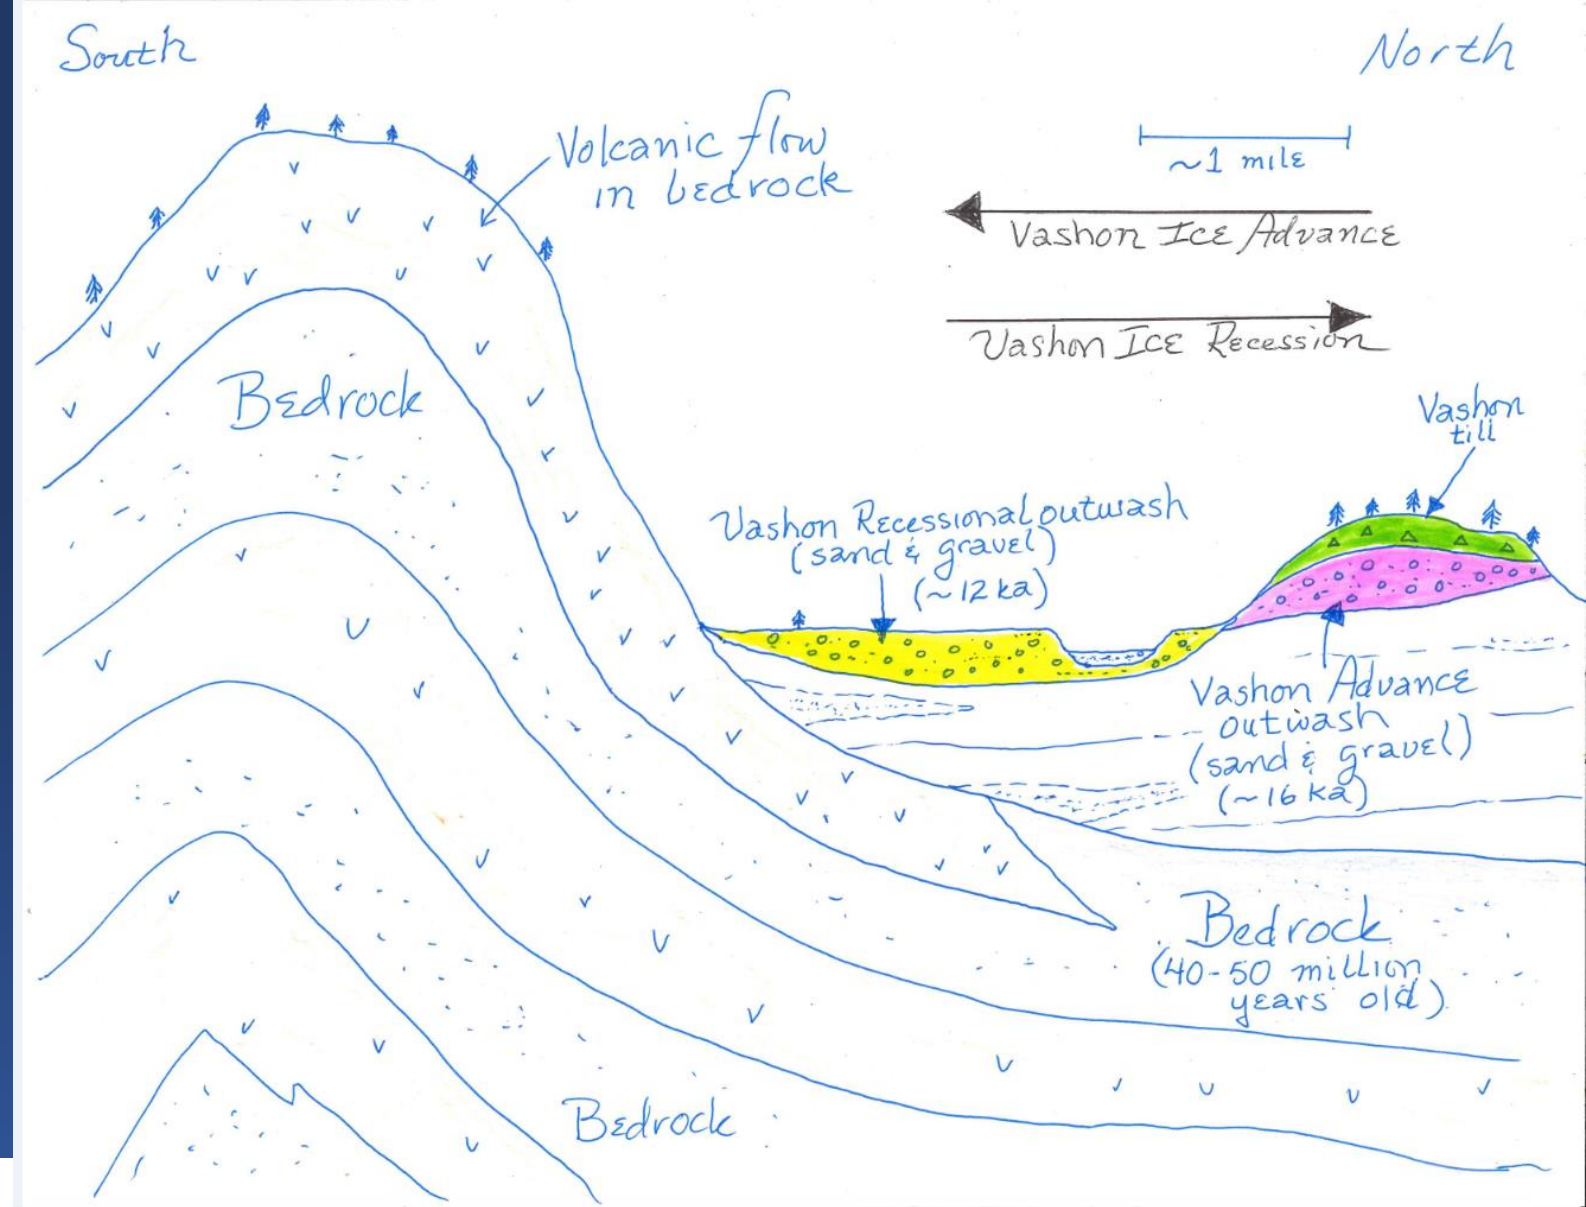 South
North
Volcanic flow
in bedrock
~1 mile
Vashon Ice Advance
Vashon Ice Recession
Bedrock
Vashon
till
Vashon Recessional outwash
(sand & gravel)
(~12 ka)
Vashon Advance
outwash
(sand & gravel)
(~16 ka)
Bedrock
(40-50 million
years old)
Bedrock